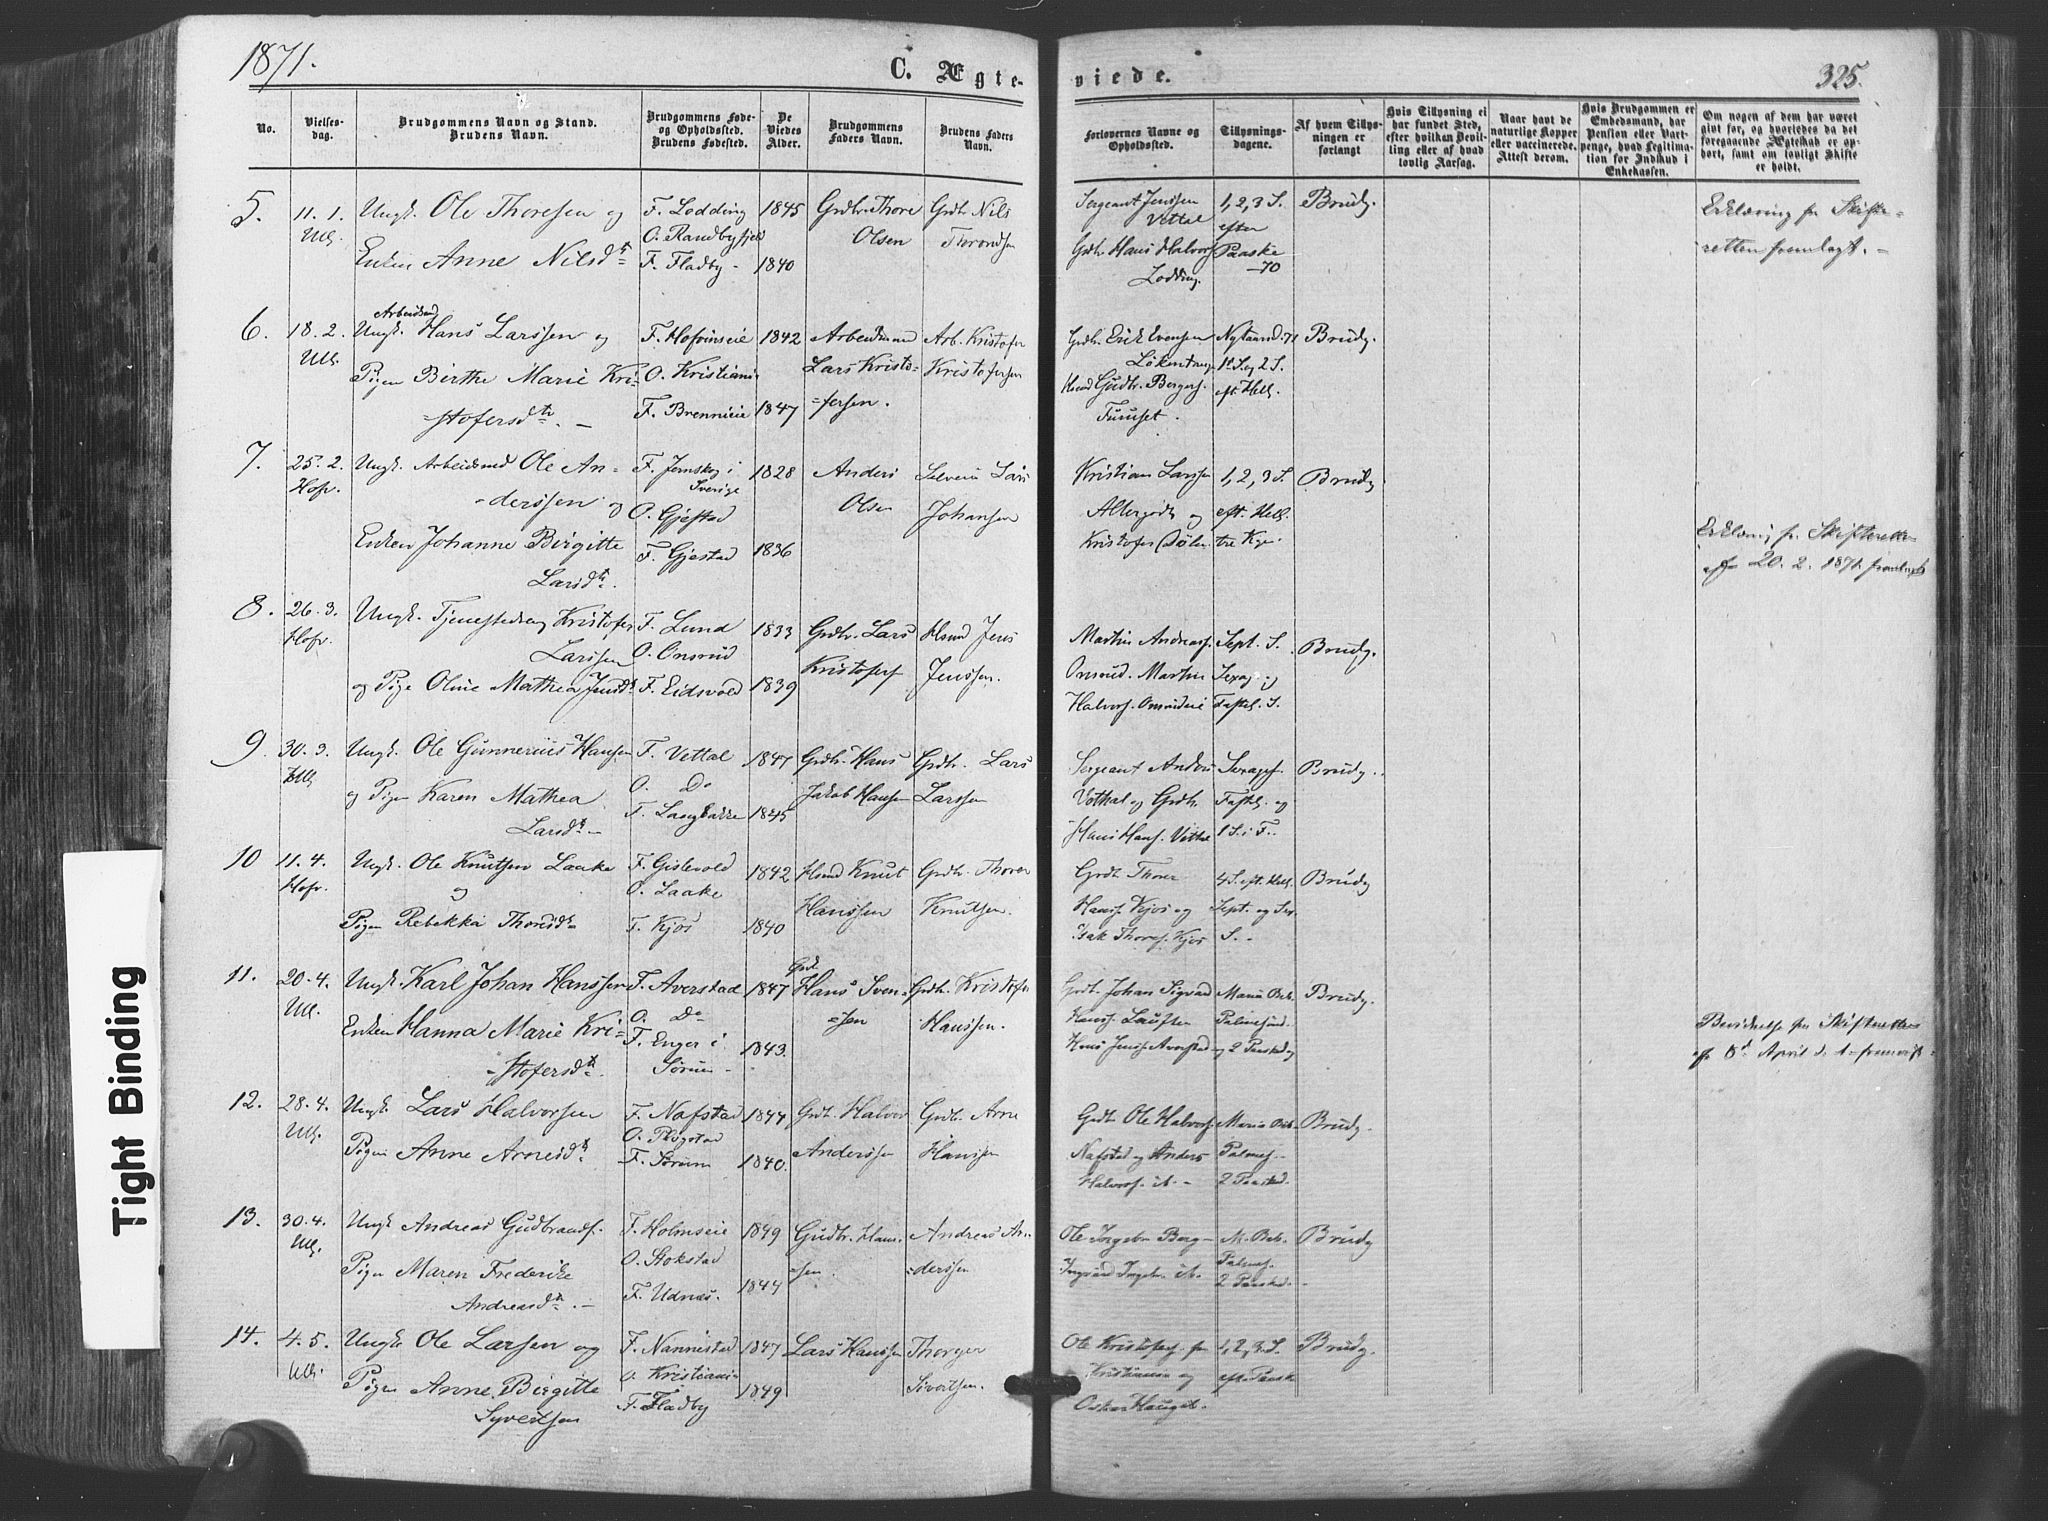 1871.
C. Ægte-
viede.
325.
No.
Vielses-dag.
Brudgommens Navn og Stand. Brudens Navn.
Brudgommens Føde- og Opholdssted. Brudens Fødested.
De Viedes Alder.
Brudgommens Faders Navn.
Brudens Faders Navn.
Forlovernes Navne og Opholdssted.
Tillysnings-dagene.
Af hvem Tillys-ningen er forlangt
Hvis Tillysning ei har fundet Sted, efter hvilken Bevil-ling eller af hvad lovlig Aarsag.
Naar havt de naturlige Kopper eller vaccinerede. Attest derom.
Hvis Brudgommen er Embedsmand, har Pension eller Vart-penge, hvad Legitima-tion for Indskud i Enkekassen.
Om nogen af dem har været givt før, og hvorledes da det foregaaende Ægteskab er op-hørt, samt om lovligt Skifte er holdt.
5.
11. 1.
Ull.
Ungk. Ole Thoresen og
Enken Anne Nilsdtr
F. Lodding
O. Randbyfjeld
F. Fladby -
1845
1840
Grdbr. Thore
Olsen
Grdb. Nils
Throndsen
Sergeant Jenssen
Vettal
Grdbr. Hans Halvors.
Lodding.
1, 2, 3 S.
efter
Paaske
-70
Brudg.
Erklæring fr Skifte-
retten fremlagt. -
6.
18. 2.
Ull.
Arbeidsmd
Ungk. Hans Larssen og
Pigen Birthe Marie Kri-
=stofersdtr. -
F. Hofrinseie
O. Kristiani-
F. Brennieie
1842
1847
Arbeidsmand
Lars Kristo-
=fersen.
Arb. Kristofer
Kristofersen
Grdbr. Erik Evensen
Løkentrug
Hsmd Gudbr. Bergers.
Furuset.
Nytaarsd. 71
1ste S. og 2 S.
eft. Hell.
Brudg.
7.
25. 2.
Hofr.
Ungk. Arbeidsmd Ole An-
=derssen og
Enken Johanne Birgitte
Larsdtr.
F. Jernskog i
Sverige
O. Gjestad
F. Gjestad
1828
1836
Anders
Olsen
Selveier Lars
Johansen
Kristian Larssen
Altergodt og
Kristofer Dølen
1, 2, 3 S.
eft. Hell.
tre Kge.
Brudg.
Erklæring fr. Skifteretten
af 20. 2. 1871 fremlagt
8.
26. 3.
Hofr.
Ungk. Tjenestedreng Kristofer
Larssen
og Pige Oline Mathea Jensdtr
F. Lund
O. Onsrud
F. Eidsvold
1833
1839
Grdbr. Lars
Kristofers
Hsmd Jens
Jenssen.
Martin Andreass.
Onsrud. Martin
Halvors. Onsrudeie
Sept. S.
Sexag. og
Fastel. S.
Brudg.
9.
30. 3.
Ull.
Ungk. Ole Gunnerius Hansen
og Pigen Karen Mathea
Larsdtr. -
F. Vettal
O. Do
F. Langbakke
1847
1845
Grdbr. Hans
Jakob Hansen
Grdbr. Lars
Larssen
Sergeant Anders
Vethal og Grdbr.
Hans Hans. Vettal
Sexages.
Fastel. og
1 S. i F.
Brudg.
10
11. 4.
Hofr.
Ungk. Ole Knutsen Laake
og
Pigen Rebekka Thoresdtr
F. Gislevold
O. Laake
F. Kjos
1842
1840
Hsmd Knut
Hanssen
Grdbr. Thorer
Knutsen.
Grdb. Thorer
Hanss. Kjos og
Isak Thores. Kjos
4 S. eft. Hell.
Sept. og Sex.
S. -
Brudg
11.
20. 4.
Ull.
Ungk. Karl Johan Hanssen
Enken Hanna Marie Kri=
=stofersdtr.
F. Averstad
O. Do
F. Enger i
Sørum -
1847
1843.
Grdb.
Hans Sven-
=sen
Grdb. Kristofer
Hanssen.
Grdb. Johan Sigvard
Hanss. Lauften
Hans Jenss. Averstad
Mariæ Beb.
Palmesønd.
og 2 Paaskedg
Brudg.
Bevidnelse fra Skifteretten
af 8de April d. A. fremvist -
12.
28. 4.
Ull.
Ungk. Lars Halvorsen
Pigen Anne Arnesdtr
F. Nafstad
O. Plogstad
F. Sørum
1844
1840.
Grdb. Halvor
Anderssen
Grdbr. Arne
Hanssen
Grdb. Ole Halvors.
Nafstad og Anders
Halvors. ib. -
Maria Beb.
Palmes. -
2 Paaskd.
Brudg.
13.
30. 4.
Ull.
Ungk Andreas Gudbrands.
Pigen Maren Frederikke
Andreasdtr. -
F. Holmseie
O. Stokstad
F. Udnæs.
1849
1844
Gudbr. Han-
=sen.
Andreas An-
=derssen
Ole Ingebr. Berg-
Ingvard Ingebr. ib.
M. Beb.
Palmes.
2 Paaskd.
Brudg
14.
4. 5.
Ull.
Ungk Ole Larsen og
Pigen Anne Birgitte
Syvertsen
F. Nannestad
O. Kristiani-
F. Fladby
1847
1849
Lars Hanssen
Thorger
Sivertsen.
Ole Kristofers. fra
Kristiania og
Oskar Hauget.
1, 2, 3. S.
eft. Paaske
Brudg.
Tight Binding